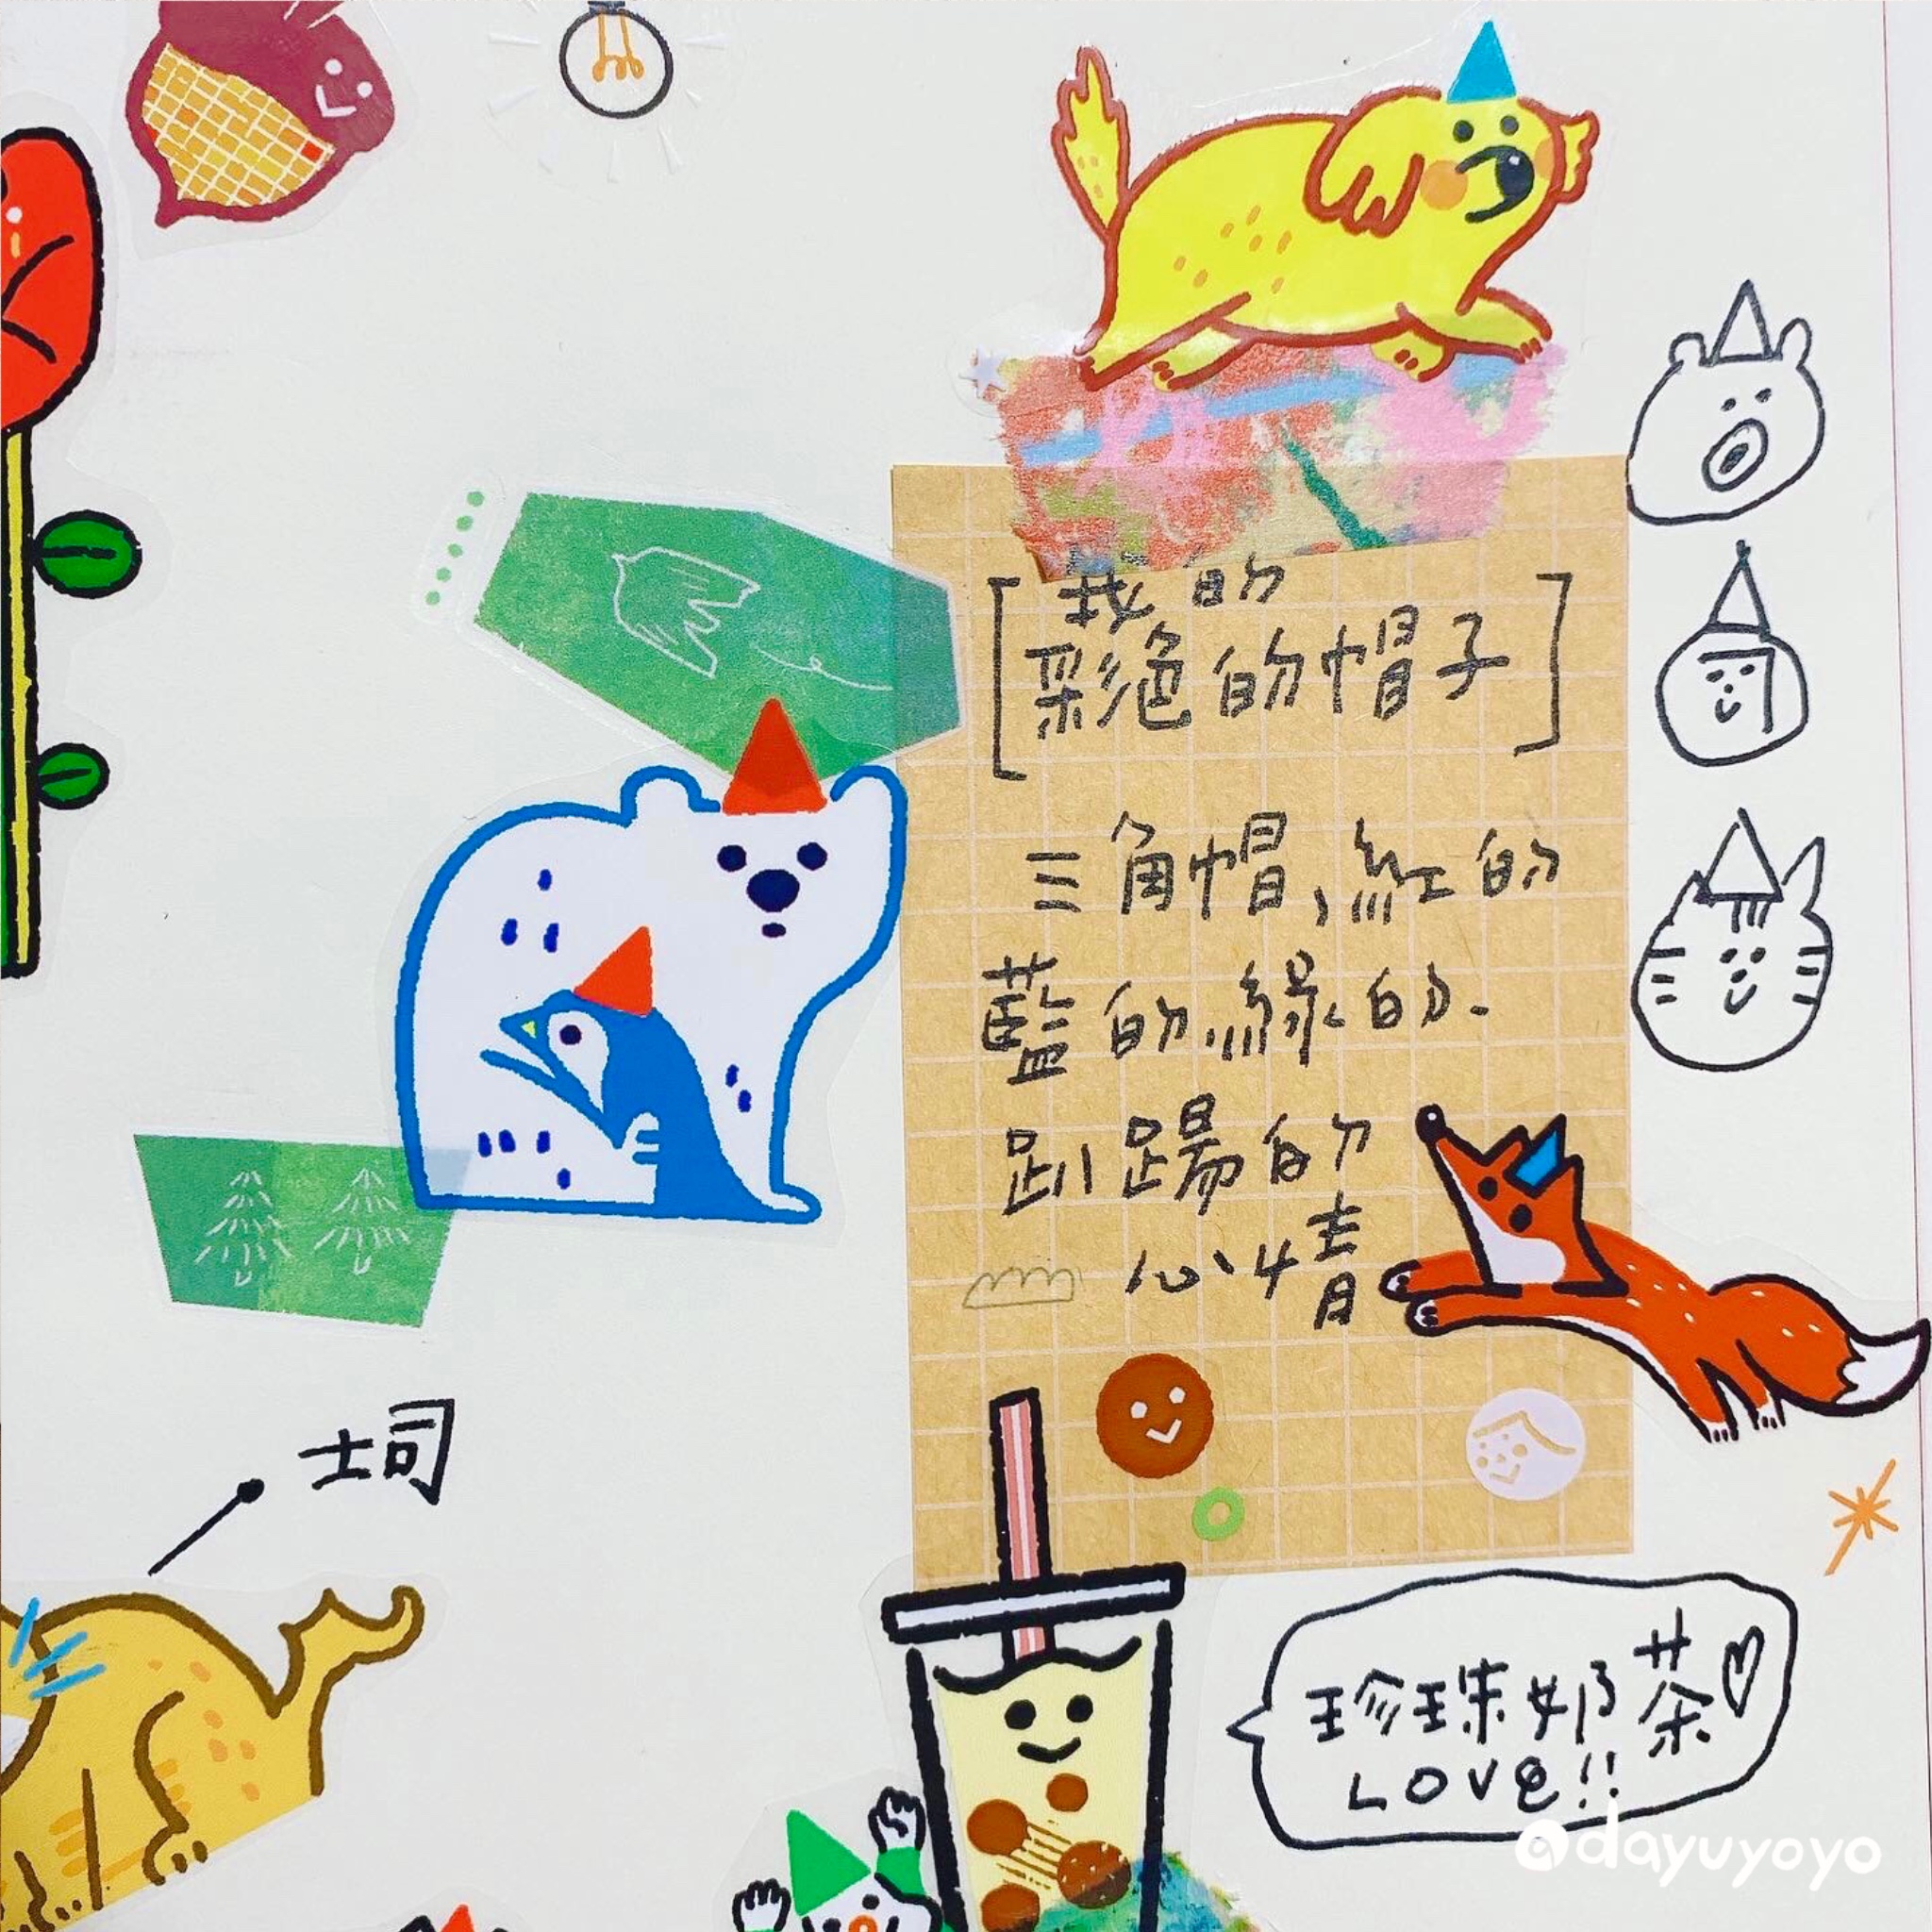 我的
[彩色的帽子]
三角帽、紅的
藍的、綠的、
趴踢的
心情
士司
珍珠奶茶♡
LOVE!!
@dayuyoyo